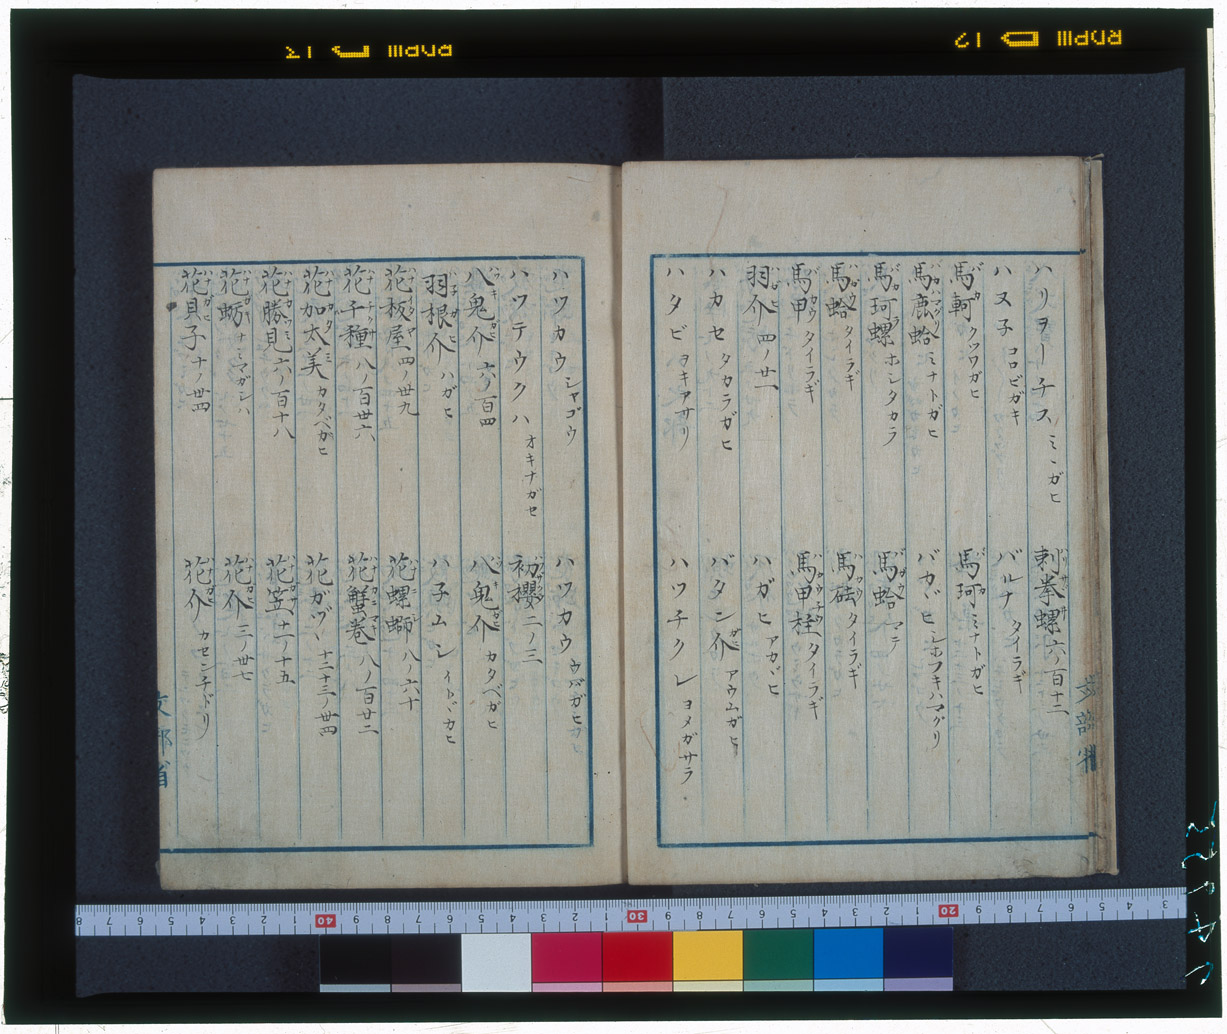 ハリヲーチス ミヽガヒ
刺拳螺 六ノ百十二
ハヌ子 コロビガキ
バルナ タイラギ
馬軻 クツワガヒ
馬珂 ミナトガヒ
馬鹿蛤 ミナトガヒ
バカヾヒ シホフキハマグリ
馬珂螺 ホシタカラ
馬蛤 マテ
馬蛤 タイラギ
馬砝 タイラギ
馬甲 タイラギ
馬甲柱 タイラギ
羽介 四ノ廿一
ハガヒ アカヾヒ
ハカセ タカラガヒ
バタン介 アウムガヒ
ハタビ ヲキアサリ
ハツチクレ ヨメガサラ
ハツカウ シャゴウ
ハツカウ ウバガヒ
ハツテウクハ オキナガセ
初櫻 二ノ三
八鬼介 六ノ百四
八鬼介 カタベガヒ
羽根介 ハガヒ
ハ子ムシ イトヾカヒ
花板屋 四ノ卅九
花螺螄 八ノ六十
花千種 八ノ百廿六
花蟹巻 八ノ百廿二
花加太美 カタベガヒ
花ガヅヽ 十二ノ卅四
花勝見 六ノ百十八
花笠 十一ノ十五
花蛎 ナミマガシハ
花介 三ノ廿七
花貝子 十ノ卅四
花介 カセンチドリ
文部省